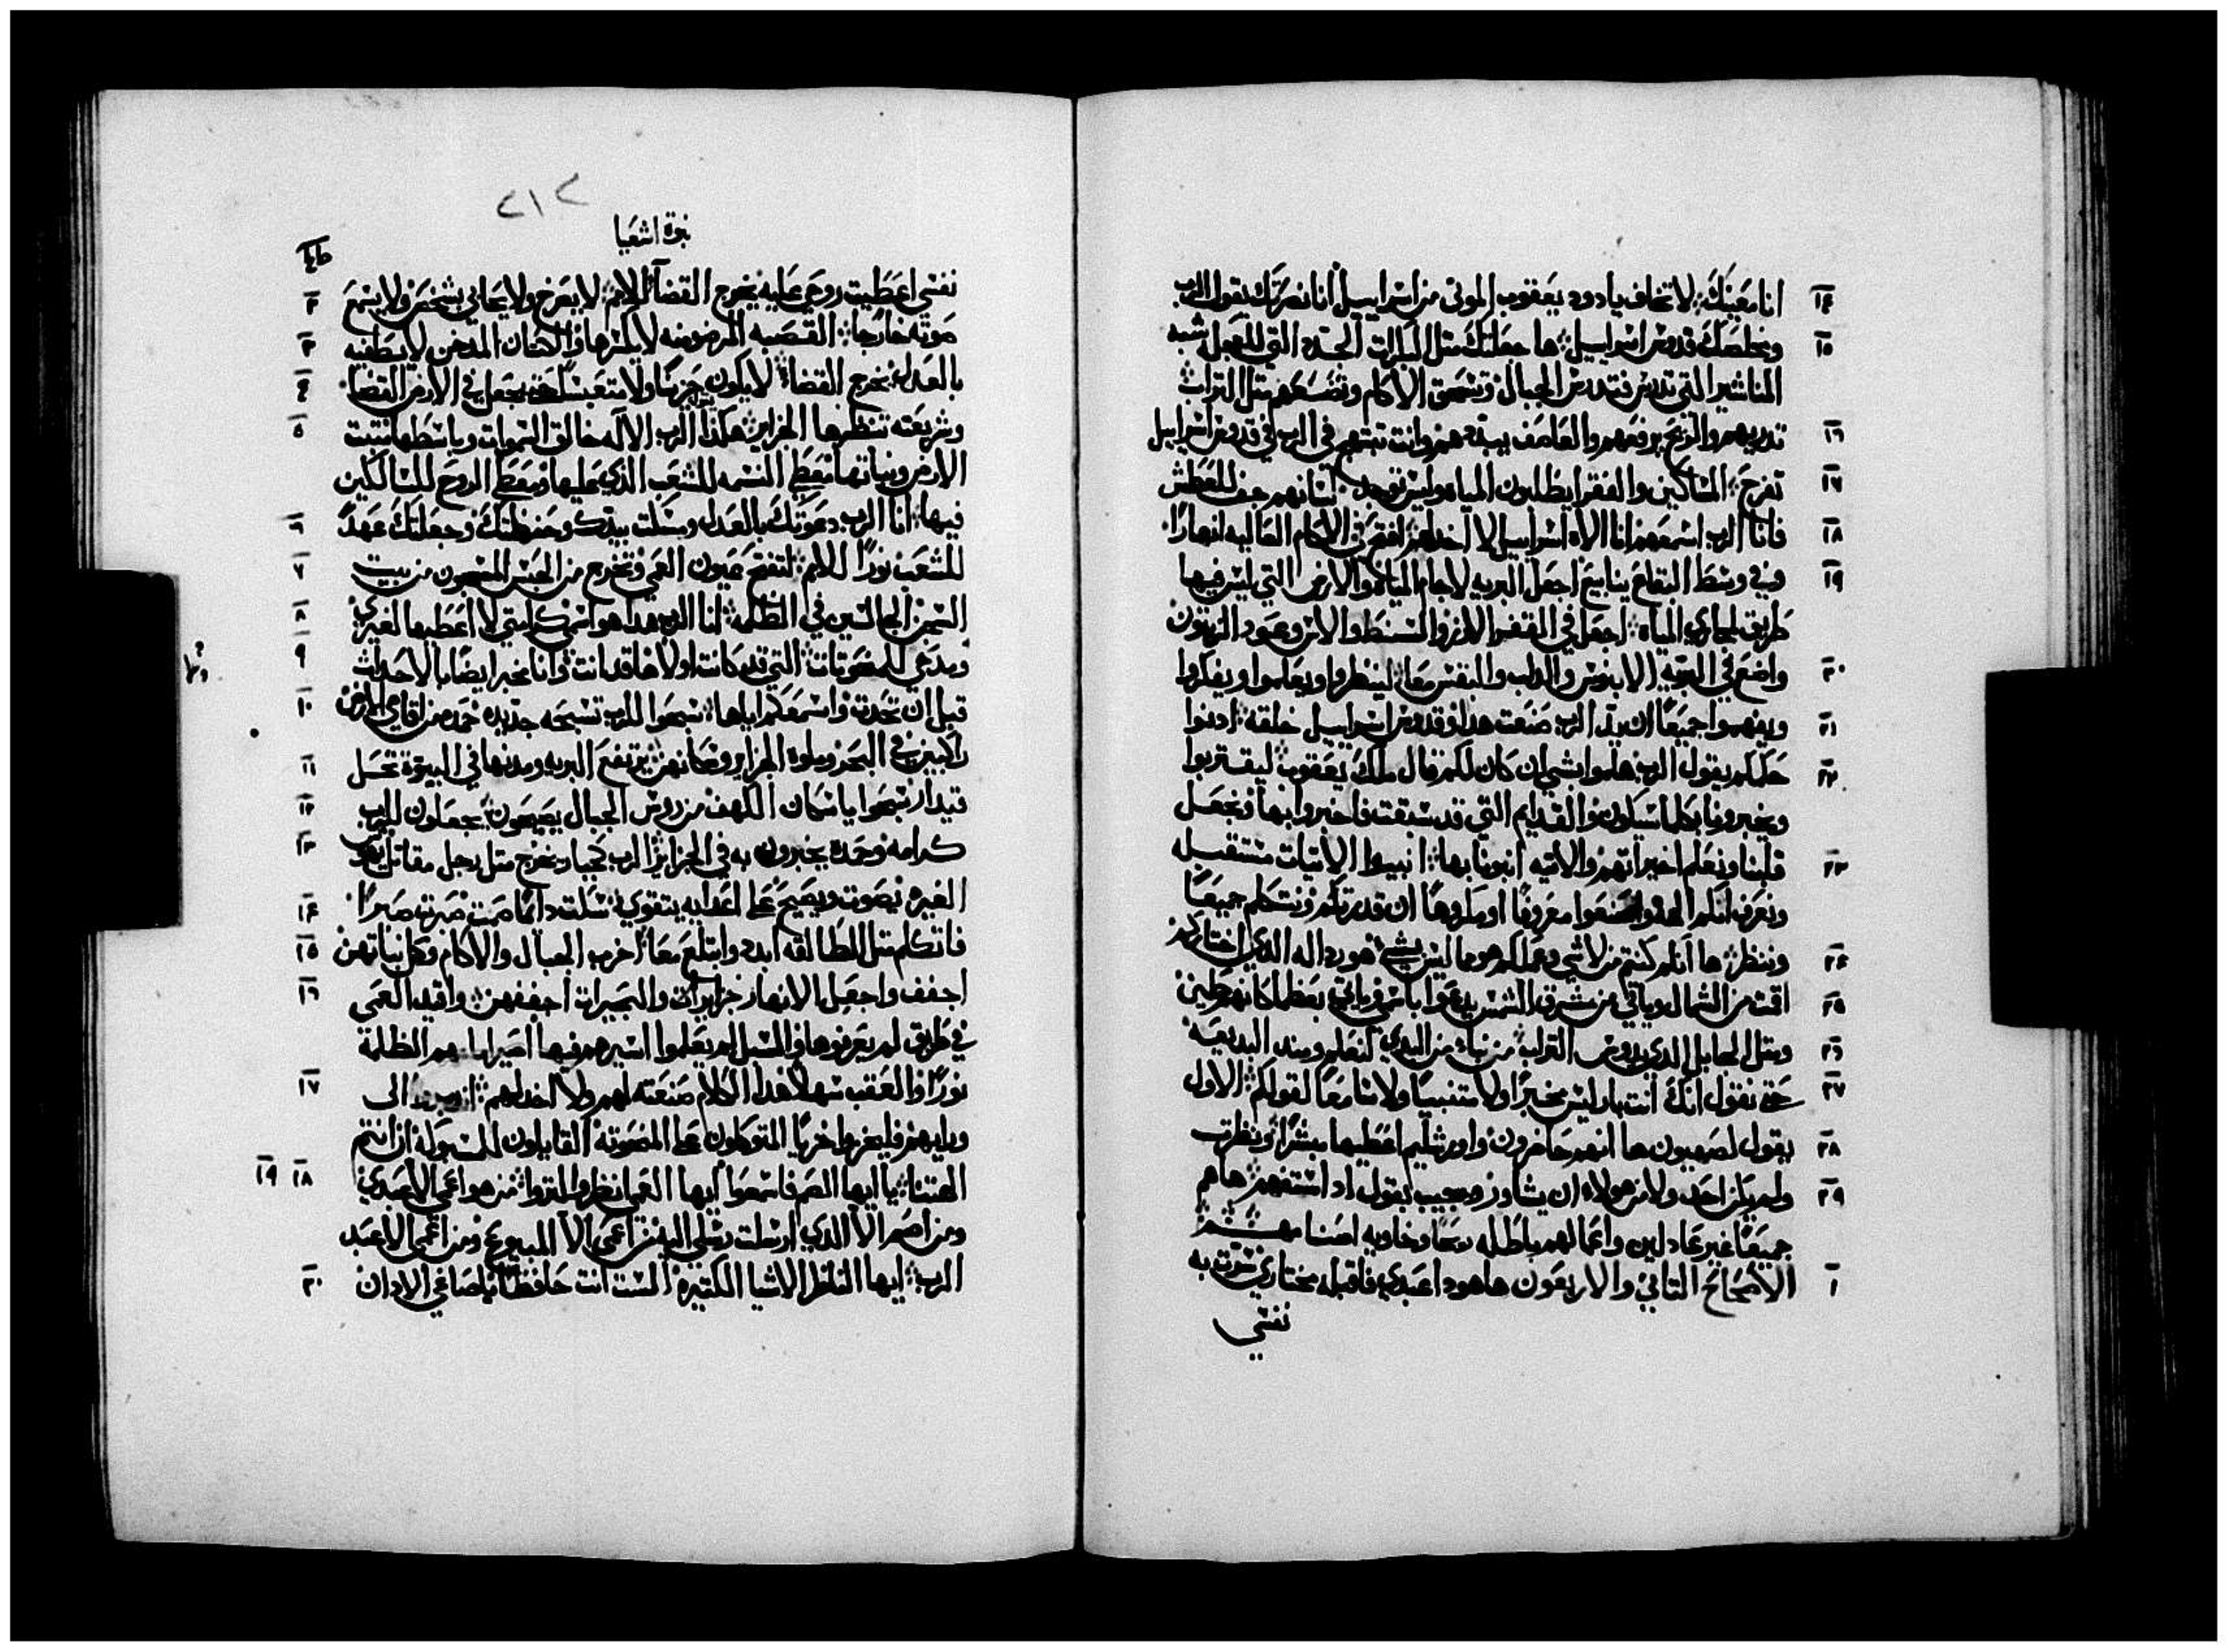 ١٤ انا معينك: لا تخاف يا دود يعقوب الموتى من اسراييل انا نصرتك يقول الرب
١٥ ومخلصك قدوس اسراييل: ها جعلتك مثل البكرات الجدد التي للعجل شبه
المناشير التي تدرس فتدرس الجبال وتسحق الاكام وتضعهم مثل التراب
١٦ تدريهم والريح يرفعهم والعاصف يبددهم وانت تبتهج في الرب في قدوس اسراييل
١٧ تفرح: المساكين والفقرا يطلبون المياه وليس توجد لسانهم جف للعطش
١٨ فانا الرب اسمعهم انا الاه اسراييل لا اخذلهم افتح في الاكام العاليه انهارًا
١٩ وفي وسط البقاع ينابيع اجعل البريه لاجام المياه والارض التي ليس فيها
طريق لمجاري المياه: اجعل في القفر الارز والسنط والاس وعود الزيتون
٢٠ واضع في البريه الابنوس والدلب والبقس معًا: لينظروا ويعلموا ويفكروا
٢١ ويفهموا جميعًا ان يد الرب صنعت هذا وقدوس اسراييل خلقه: ادنوا
٢٢ حكمكم يقول الرب هلموا بشي ان كان لكم قال ملك يعقوب: ليقتربوا
ويخبرونا بكلما سيكون والقدايم التي قد سبقت فاخبروا بها ونجعل
٢٣ قلبنا ونعلم اخراتهم والاتيه انبونا بها: انبيوا الاتيات مستقبله
ونعرف انكم الهه واصنعوا معروفًا او مكروهًا ان قدرتكم ونتكلم جميعًا
٢٤ وننظر: ها انكم كنتم من لا شي وعملكم هو مما ليس بشي هو رداله الذي اختاركم
٢٥ اقمت من الشمال وياتي من مشرق الشمس يدعوا باسمي وياتي بعظما كانهم طين
٢٦ ومثل الجابل الذي يدوس التراب: من نبا من البدي لنعلم ومند البديه
٢٧ حتى نقول انك انت بار ليس مخبرًا ولا متنبيًا ولا سامعًا لقولكم: الاول
٢٨ يقول لصهيون ها انهم حاضرون واورشليم اعطيها مبشرًا: ونظرت
٢٩ ولم يكن احد ولا من هولاء ان يشاور ومجيب يقول اذا استفهم: ها هم
جميعًا غير عادلين واعمالهم باطله ريحًا وخاويه اصنامهم
١ الاصحاح الثاني والاربعون ها هودا عبدي فاقبله مختاري سرت به
نفسي
٢١٢
نبوة اشعيا
نفسي اعطيت روحي عليه يخرج القضا للامم: لا يصرخ ولا يحابي بشخص ولا يسمع ٢
صوته خارجًا: القصبه المرضوضه لا يكسرها والكتان المدخن لا يطفيه ٣
بالعدل يخرج القضا: لا يكون حزينًا ولا متعبسًا حتى يجعل في الارض القضا ٤
وشريعته تنتظرها الجزاير: هكذا الرب الاله خالق السموات وباسطها مثبت ٥
الارض ونباتها معطي النسمه للشعب الذي عليها ومعطي الروح للسالكين
فيها: انا الرب دعوتك بالعدل ومسكت بيدك وحفظتك وجعلتك عهد ٦
للشعب نورًا للامم: لتفتح عيون العمي وتخرج من الحبس المسجون من بيت ٧
السجن الجالسين في الظلمه: انا الرب هذا هو اسمي كرامتي لا اعطيها لغيري ٨
ومدحي للمنحوتات: التي قد كانت اولا ها قد اتت وانا مخبر ايضًا بالاحداث ٩
قبل ان تحدث واسمعكم اياها: سبحوا للرب تسبحه جديده حمده من اقاصي الارض ١٠
راكبين في البحر وملوه الجزاير وسكانهن: يرتفع البريه ومدنها في البيوت تحل ١١
قيدار سبحوا يا سكان الكهف من روس الجبال يصيحون: يجعلون للرب ١٢
كرامه وحمده يخبرون به في الجزاير: الرب كجبار يخرج مثل رجل مقاتل ١٣
الغيره يصوت ويصيح على اعدايه يتقوي: سكت دايمًا صمت صبرت صبرًا ١٤
فاتكلم مثل الطالقه ابدد وابتلع معًا: اخرب الجبال والاكام وكل نباتهن ١٥
اجفف واجعل الانهار جزايرات والبحيرات اجففهن: واقيد العمي ١٦
في طريق لم يعرفوها في السبل لم يعلموا اسيرهم فيها اصير امامهم الظلمة
نورًا والعقب سهلا هذا الكلام صنعته لهم ولا اخذلهم: ارتدوا الى ١٧
ورايهم فليخزوا خزيًا المتوكلون على المنحوته القايلون للمسبوكه انتم
الهتنا: يا ايها الصم فاسمعوا ايها العمي انظروا لتروا: من هو اعمى الا عبدي ١٨ ١٩
ومن اصم الا الذي ارسلت رسلي اليه من اعمى الا المبيوع ومن اعمى الا عبد
الرب: ايها الناظر الاشيا الكثيره الست انت حافظًا يا صاغي الادان ٢٠